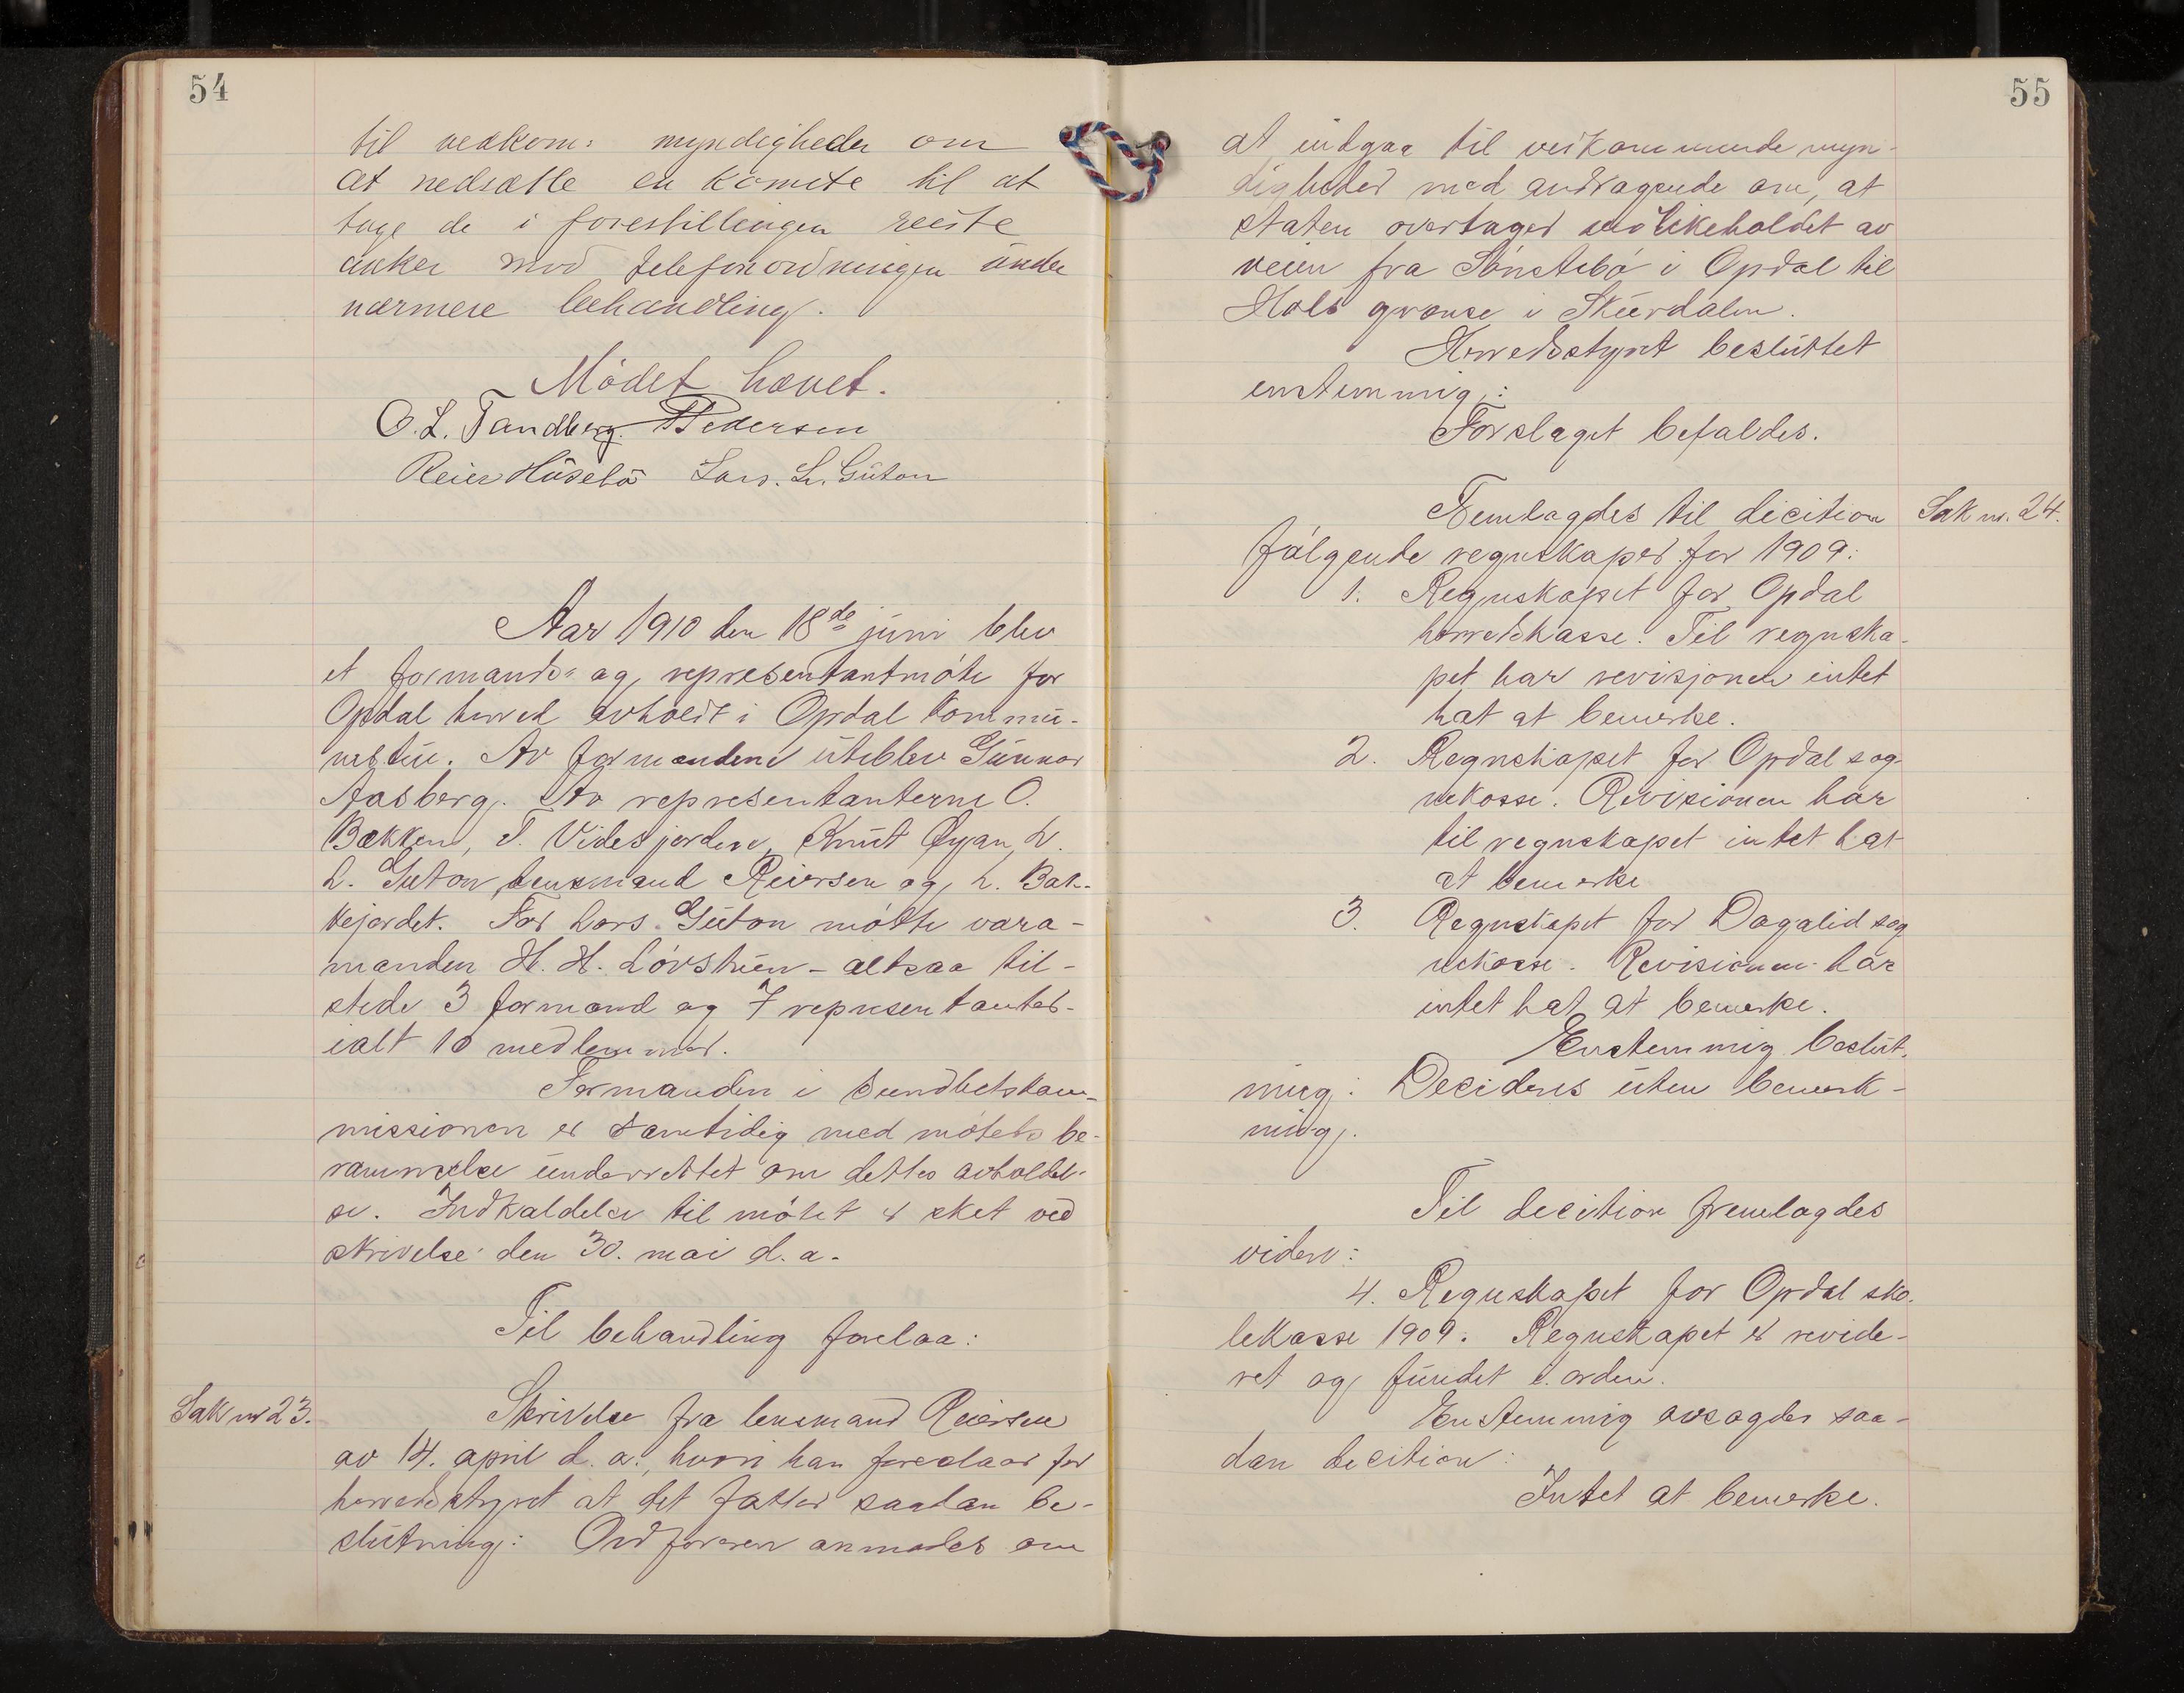 54
til vedkom: myndigheder om
at nedsætte en komite til at
tage de i forestillingen reiste
anker mod telefonordningen under
nærmere behandling.
Mödet hævet.
O. L. Tandberg. P Pedersen
Reier Húsebö Lars. L. Gúton
Aar 1910 den 18de júni blev
et formands- og representantmöte for
Opdal herred avholdt i Opdal kommú-
nestúe. Av formændene úteblev Gúnnar
Aasberg. Av representanterne O.
Bækken, T. Videsjordene, Knút Öyan, L.
L. Gúton, lensmand Reiersen og L. Bak-
kejordet. For Lars Gúton mötte vara-
manden H. H. Lövstúen - altsaa til-
stede 3 formænd og 7 representanter-
ialt 10 medlemmer.
Formanden i sundhetskom-
missionen er samtidig med mötets be-
rammelse únderrettet om dettes avholdel-
se. Indkaldelse til mötet er sket ved
skrivelse den 30. mai d. a.
Til behandling forelaa:
Sak nr 23.
Skrivelse fra lensmand Reiersen
av 14. april d. a., hvori han foreslaar for
herredsstyret at det fatter saadan be-
slútning: Ordföreren anmodes om
55
at indgaa til vedkommende myn-
digheder med andragende om, at
staten overtager vedlikeholdet av
veien fra Sönstebö i Opdal til
Hols grænse i Skúrdalen.
Herredsstyret beslúttet
enstemmig:
Forslaget befaldes.
Sak nr. 24.
Fremlagdes til decition
fölgende regnskaper for 1909:
1. Regnskapet for Opdal
herredskasse. Til regnska-
pet har revisjonen intet
hat at bemerke.
2. Regnskapet for Opdal sog-
nekasse. Revisionen har
til regnskapet intet hat
at bemerke
3. Regnskapet for Dagalid sog
nekasse. Revisionen har
intet hat at bemerke.
Enstemmig beslút-
ning: Decideres úten bemerk-
ning.
Til decition fremlagdes
videre:
4. Regnskapet for Opdal sko-
lekasse 1909. Regnskapet er revide-
ret og fúndet i orden.
Enstemmig avsagdes saa-
dan decition:
Intet at bemerke.